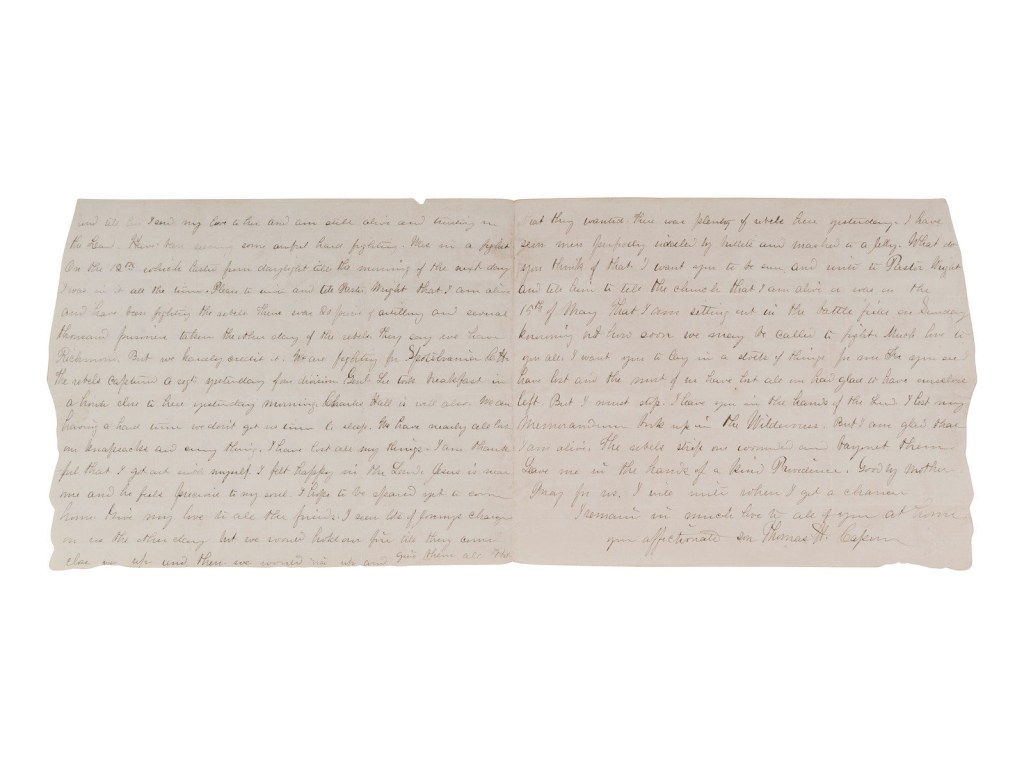 I send my love to her and am still alive and trusting in
the Lord. Have been seeing some awful hard fighting. Was in a fight
On the 12th which lasted from daylight till the morning of the next day
I was in it all the time. Please to and tell Pastor Wright that I am alive
and have been fighting the rebels. There was 20 pieces of artillery and several
thousand prisoners taken the other day of the rebels. They say we have
Richmond. But we hardly credit it. We are fighting for Spotsilvania C. H.
The rebels captured a regt yesterday of our division. Genl. Lee took breakfast in
a house close to here yesterday morning. Charles Hall is well also. We are
having a hard time we don't get no time to sleep. We have nearly all lost
our knapsacks and every thing. I have lost all my things. I am thank
ful that I got out with myself. I felt happy in the Lord. Jesus is near
me and he feels precious to my soul. I hope to be spared yet to come
home. Give my love to all the friends. I seen lots of charge
on us the other day but we would hold our fire till they came
close up and then we would rise up and give them all the
at they wanted there was plenty of rebels here yesterday. I have
seen men purfectly riddeled by bullets and mashed to a jelly. What do
you think of that. I want you to be sure and write to Pastor Wright
and tell him to tell the church that I am alive or was on the
15th of May that I am setting out in the battle field on Sunday
knowing not how soon we may be called to fight. Much love to
you all. I want you to lay in a store of things for me
have lost and the most of us have lost all we had glad to have ourselves
left. But I must stop. I leave you in the hands of the Lord. I lost my
Memorandum book up in the Wilderness. But I am glad that
I am alive. The rebels strip our wounded and bayonet them.
Leave me in the hands of a kind Providence. Good by Mother
Pray for us. I will write when I get a chance
I remain in much love to all of you at home
your affectionate son Thomas H. Capern